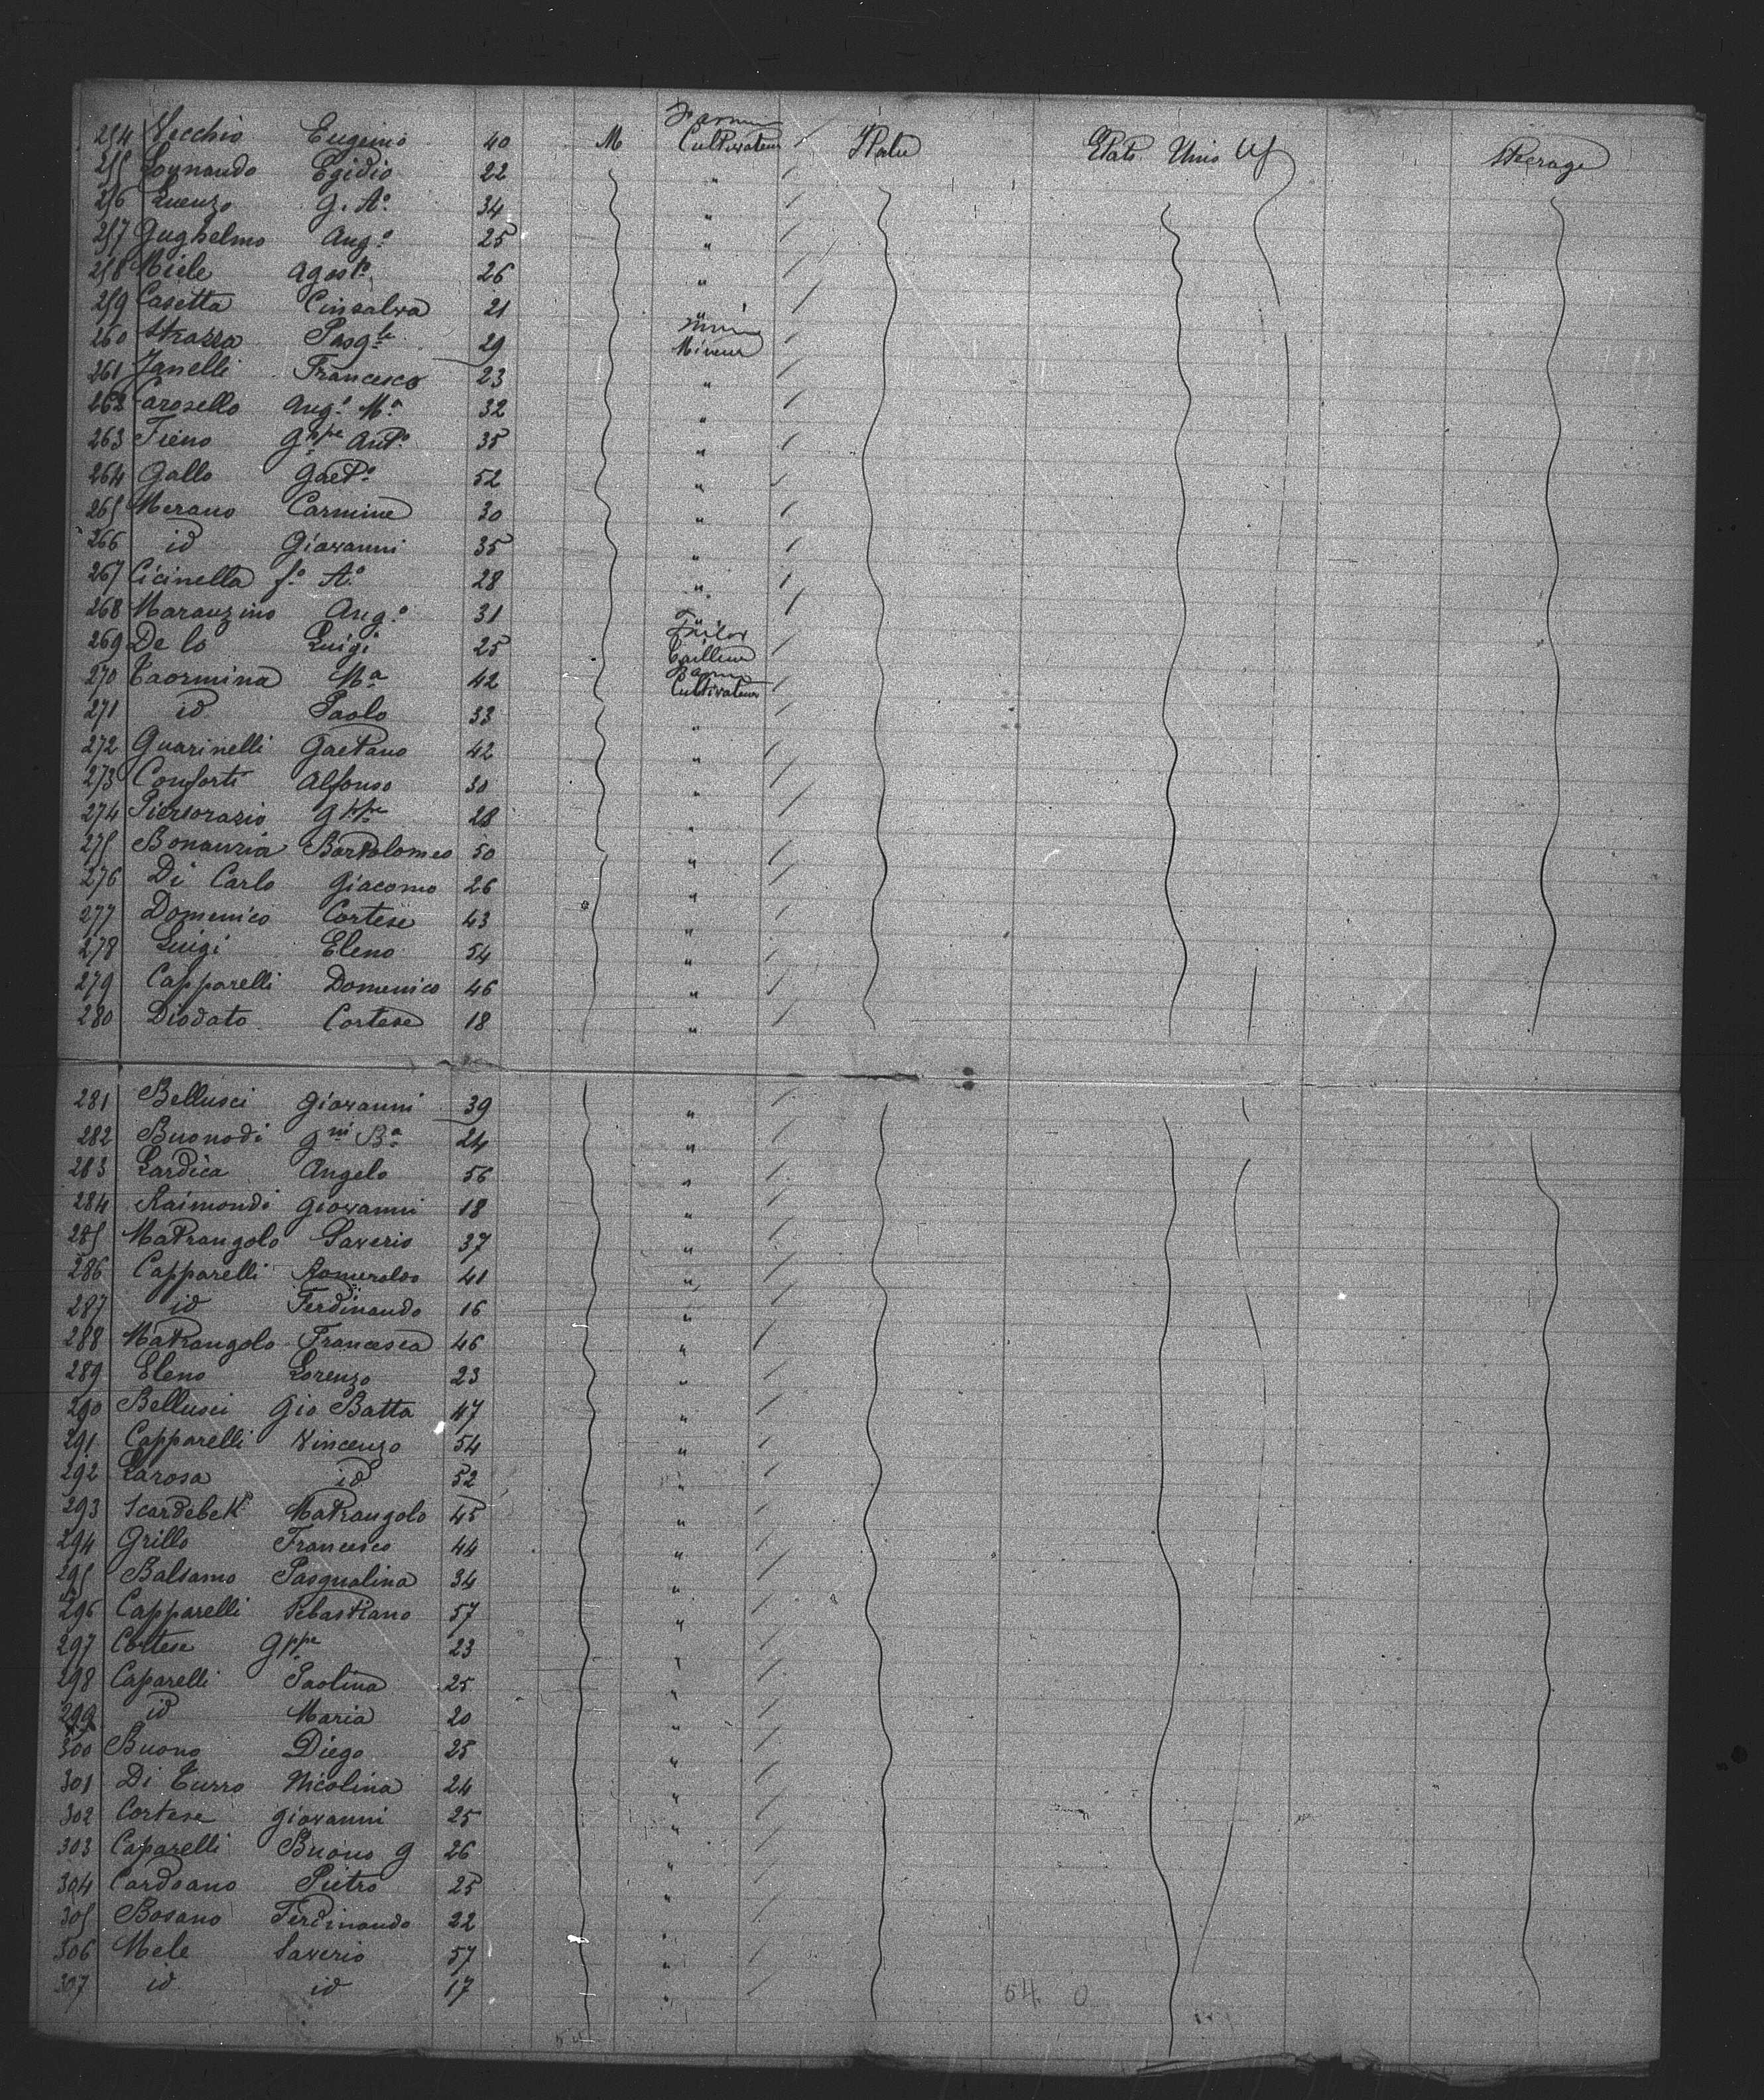 254 Vecchio Eugenio 40 M Farmer Cultivateur / Italie Etats Unis Steerage
255 Egidio 22 " /
256 G. A.º 34 " /
257 Guglielmo Ang.º 25 " /
258 Miele Agost.º 26 " /
259 Casetta Cinsalva 21 " /
260 Strazza Pasq.le 29 Mineur /
261 Zanelli Francesco 23 " /
262 Carosello Ang.º M.ª 32 " /
263 Tieno Gppe Ant.º 35 " /
264 Gallo Gaet.º 52 " /
265 Merano Carmine 30 " /
266 id Giovanni 35 " /
267 Cicinella f.º A.º 28 " /
268 Maranzino Ang.º 31 " /
269 De lo Luigi 25 Tailor Tailleur /
270 Taormina M.ª 42 Farmer Cultivateur /
271 id Paolo 33 " /
272 Guarinelli Gaetano 42 " /
273 Conforti Alfonso 30 " /
274 Piersorazio Gppe 28 " /
275 Bonauria Bartolomeo 50 " /
276 Di Carlo Giacomo 26 " /
277 Domenico Cortese 43 " /
278 Luigi Eleno 54 " /
279 Capparelli Domenico 46 " /
280 Diodato Cortese 18 " /
281 Bellusci Giovanni 39 " /
282 Buonodi Gni Bª 24 " /
283 Lardica Angelo 56 " /
284 Raimondi Giovanni 18 " /
285 Matrangolo Saverio 37 " /
286 Capparelli Romeraldo 41 " /
287 id Ferdinando 16 " /
288 Matrangolo Francesca 46 " /
289 Eleno Lorenzo 23 " /
290 Bellusci Gio Batta 47 " /
291 Capparelli Vincenzo 54 " /
292 Larosa id 52 " /
293 Matrangolo 45 " /
294 Grillo Francesco 44 " /
295 Balsamo Pasqualina 34 " /
296 Capparelli Sebastiano 57 " /
297 Cortese Gppe 23 " /
298 Caparelli Paolina 25 " /
299 id Maria 20 " /
300 Buono Diego 25 " /
301 Di Turro Nicolina 24 " /
302 Cortese Giovanni 25 " /
303 Caparelli Buono G 26 " /
304 Cardoano Pietro 25 " /
305 Bosano Ferdinando 22 " /
306 Mele Saverio 57 " /
307 id id 17 " /
54 0